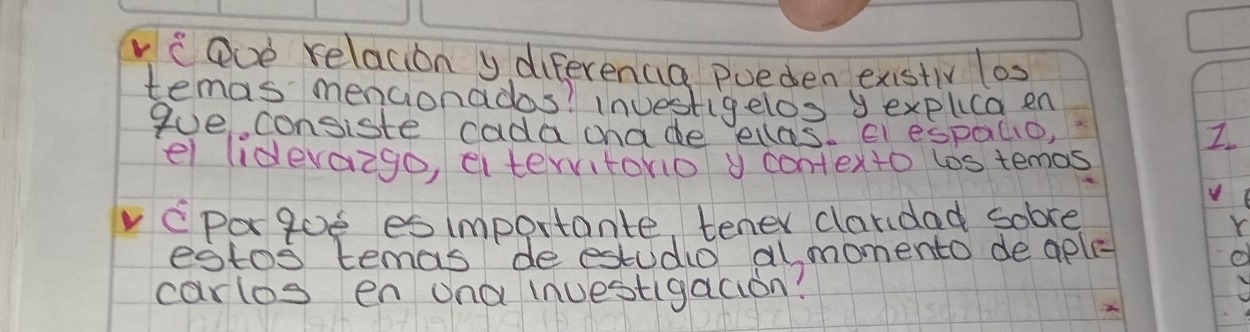 v ¿Qué relación y diferencia pueden existir los
temas mencionados? investigelos y explica en
que consiste cada una de ellas. el espacio,
el liderazgo, el territorio y contexto los temas
v ¿Por qué es importante tener claridad sobre
estos temas de estudio al momento de apli-
carlos en una investigación?
I.
v